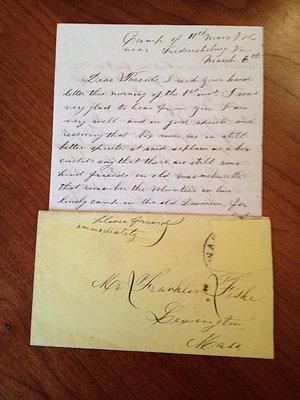 Camp of 11th Mass Vols
near Fredericksburg Va
March 6th
Dear Parents, I recd your kind
letter this morning of the 1st inst. I was
very glad to hear from you. I am
very well and in good spirits and
receiving that Box made me in still
better spirits it said as plain as a box
could say that there are still some
kind friends in old Massachusetts
that remember the Volunteer in his
lonely camp in the old Dominion for
please forward
immediately
Mr Franklin Fiske
Lexington
Mass